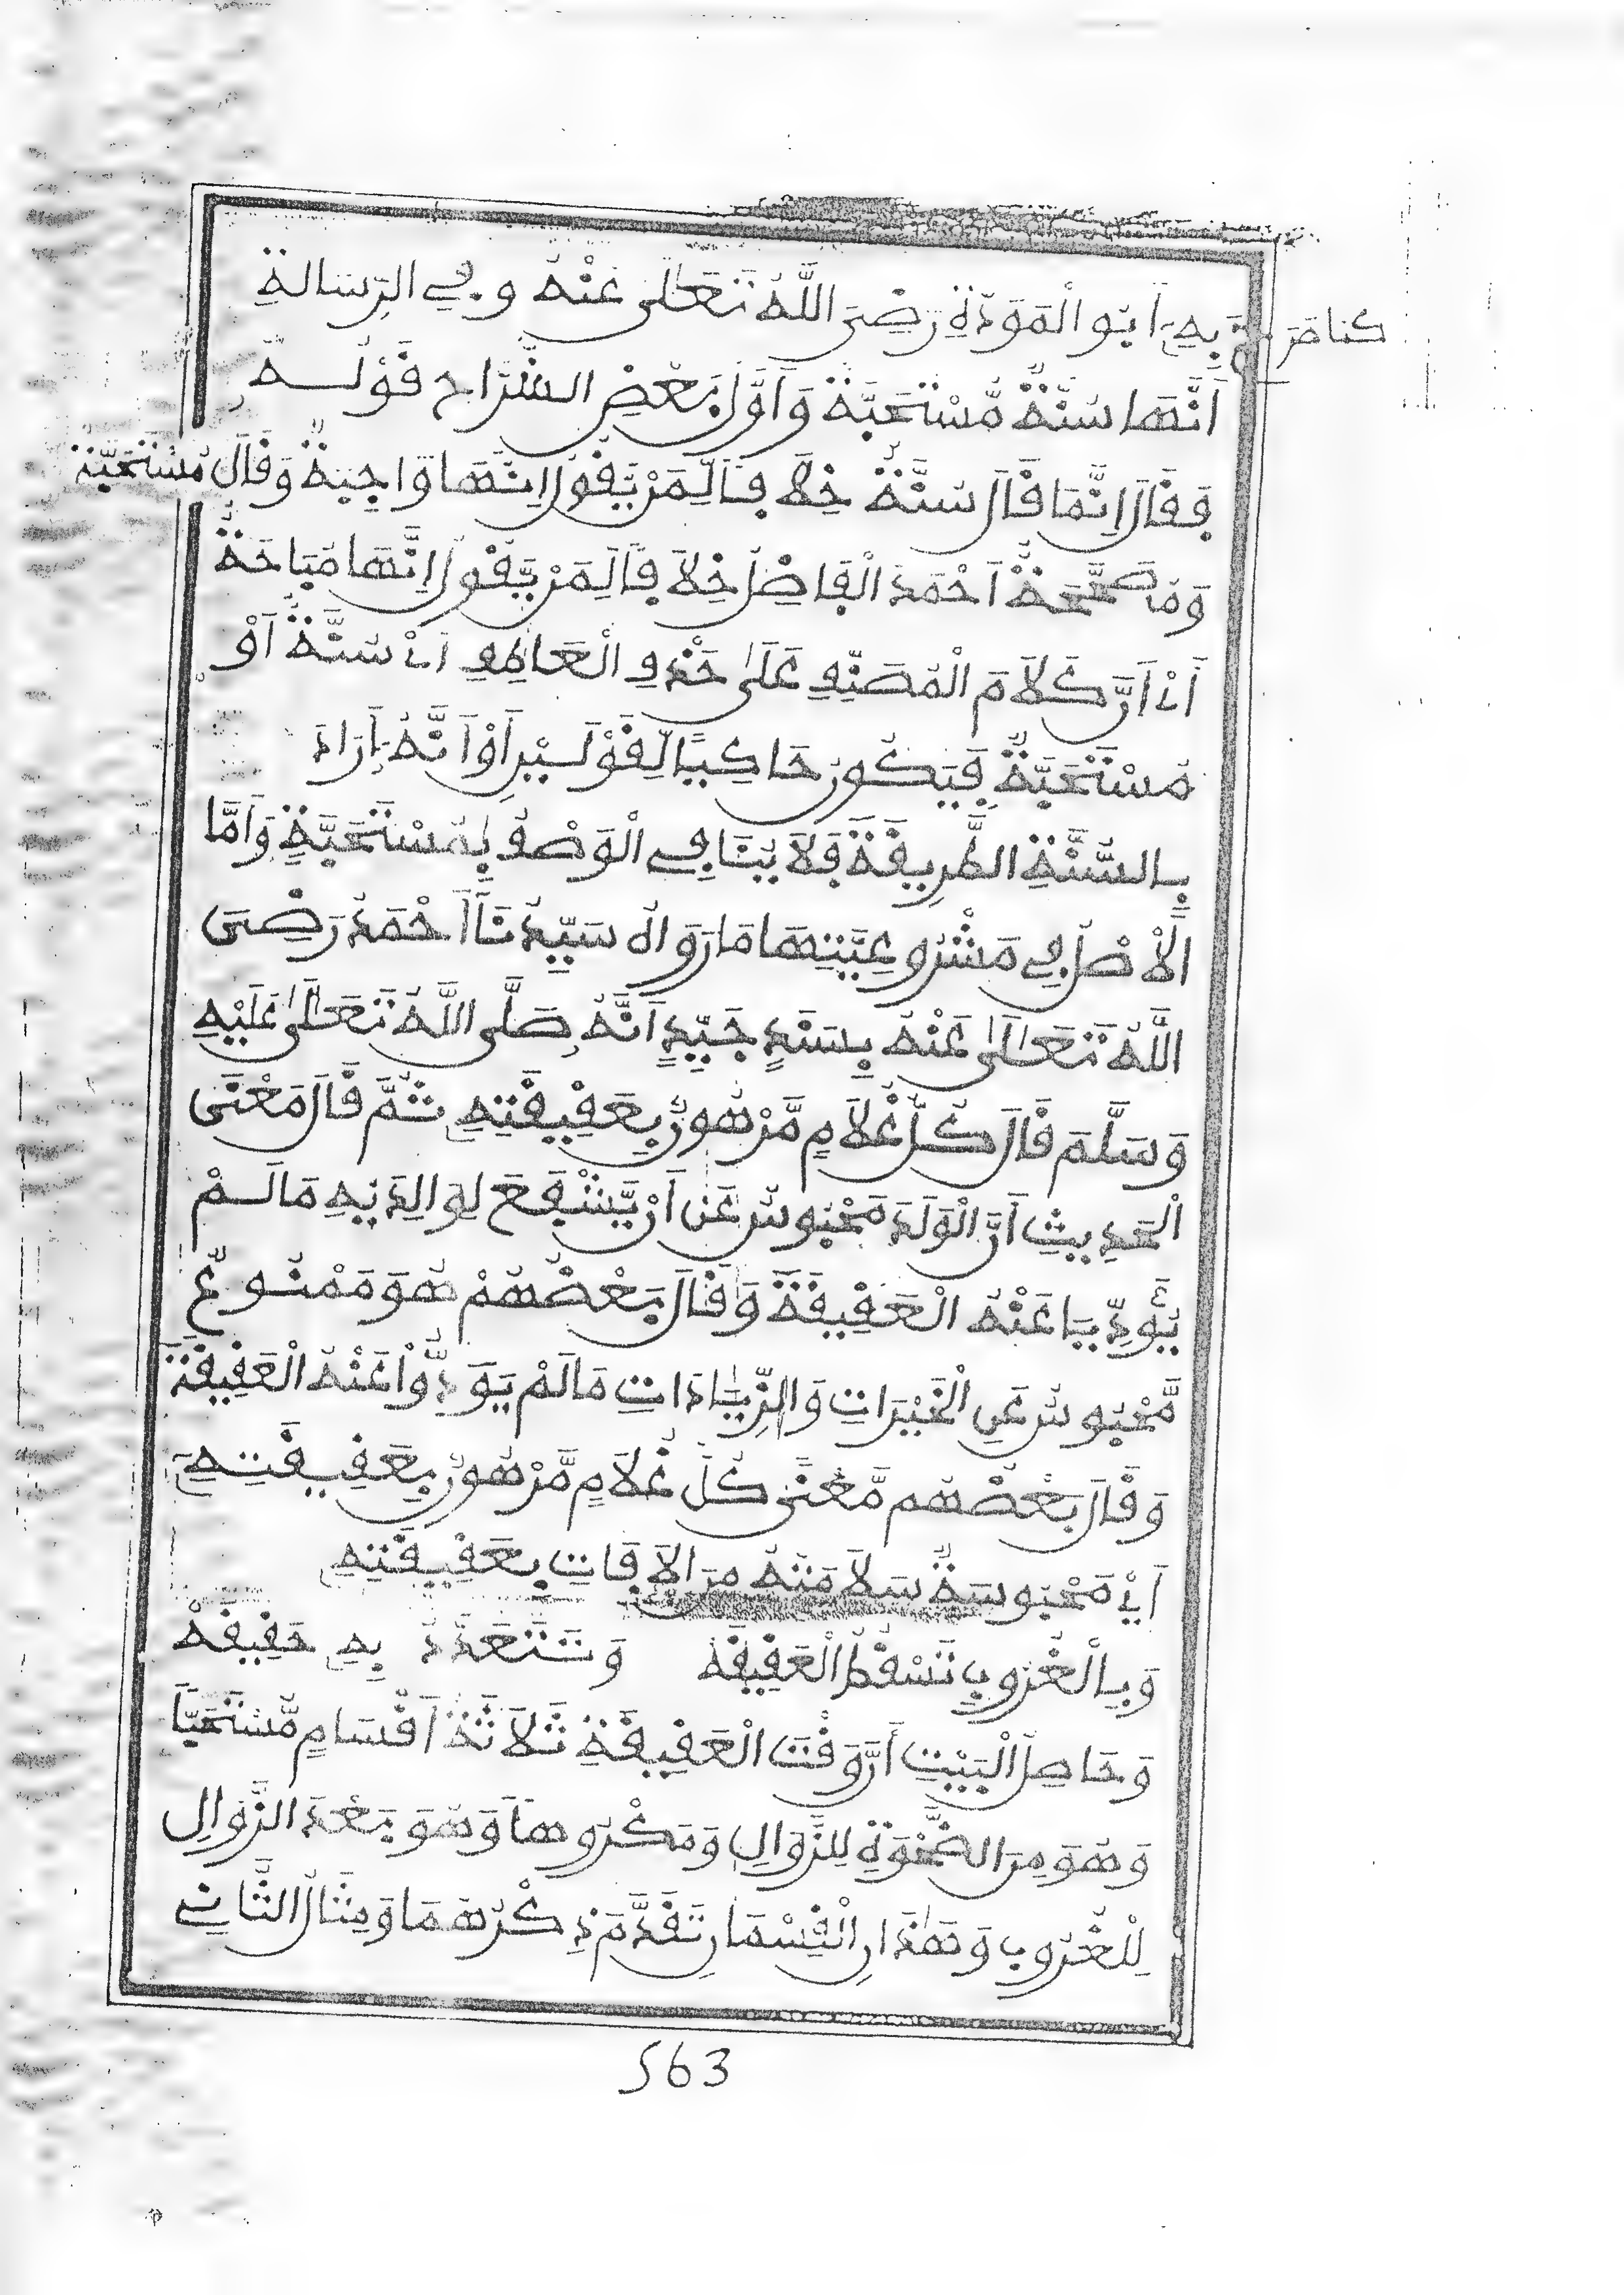 كما صرح بِهِ أَبُو الْمَوَدَّةِ رَضِيَ اللَّهُ تَعَلَى عَنْهُ وَفِي الرِّسَالَةِ
أَنَّهَا سُنَّةٌ مُّسْتَحَبَّةٌ وَأَوَّلَ بَعْضُ الشُّرَّاحِ قَوْلَهُ
فَقَالَ إِنَّمَا قَالَ سُنَّةٌ خِلَافًا لِمَنْ يَقُولُ إِنَّهَا وَاجِبَةٌ وَقَالَ مُسْتَحَبَّةٌ
وَمَا صَحَّحَهُ أَحْمَدُ الْفَاضِلُ خِلَافًا لِمَنْ يَقُولُ إِنَّهَا مُبَاحَةٌ
أَيْ أَنَّ كَلَامَ الْمُصَنِّفِ عَلَى حَذْفِ الْعَاطِفِ أَيْ سُنَّةٌ أَوْ
مُسْتَحَبَّةٌ فَيَكُونُ حَاكِيًا لِّقَوْلَيْنِ أَوْ أَنَّهُ أَرَادَ
بِالسُّنَّةِ الطَّرِيقَةَ فَلَا يُنَافِي الْوَصْفَ بِمُسْتَحَبَّةٍ وَأَمَّا
الْأَصْلُ فِي مَشْرُوعِيَّتِهَا مَا رَوَاهُ سَيِّدُنَا أَحْمَدُ رَضِيَ
اللَّهُ تَعَلَى عَنْهُ بِسَنَدٍ جَيِّدٍ أَنَّهُ صَلَّى اللَّهُ تَعَلَى عَلَيْهِ
وَسَلَّمَ قَالَ كُلُّ غُلَامٍ مَّرْهُونٌ بِعَقِيقَتِهِ ثُمَّ قَالَ مَعْنَى
الْحَدِيثِ أَنَّ الْوَلَدَ مَحْبُوسٌ عَن أَنْ يَّشْفَعَ لِوَالِدَيْهِ مَا لَمْ
يُؤَدِّيَا عَنْهُ الْعَقِيقَةَ وَقَالَ بَعْضُهُمْ هُوَ مَمْنُوعٌ
مَّحْبُوسٌ عَنِ الْخَيْرَاتِ وَالزِّيَادَاتِ مَا لَمْ يُؤَدُّواْ عَنْهُ الْعَقِيقَةَ
وَقَالَ بَعْضُهُم مَّعْنَى كُلُّ غُلَامٍ مَّرْهُونٌ بِعَقِيقَتِهِ
أَيْ مَحْبُوسَةٌ سَلَامَتُهُ مِنَ الْآفَاتِ بِعَقِيقَتِهِ
وَبِالْغُرُوبِ تَسْقُطُ الْعَقِيقَهْ وَتَتَعَدَّدُ بِهِ حَقِيقَهْ
وَحَاصِلُ الْبَيْتِ أَنَّ وَقْتَ الْعَقِيقَةِ ثَلَاثَةُ أَقْسَامٍ مُّسْتَحَبًّا
وَهُوَ مِنَ الضَّحْوَةِ لِلزَّوَالِ وَمَكْرُوهًا وَهُوَ بَعْدَ الزَّوَالِ
لِلْغُرُوبِ وَهَذَانِ الْقِسْمَانِ تَقَدَّمَ ذِكْرُهُمَا وَمِثَالُ الثَّانِي
563